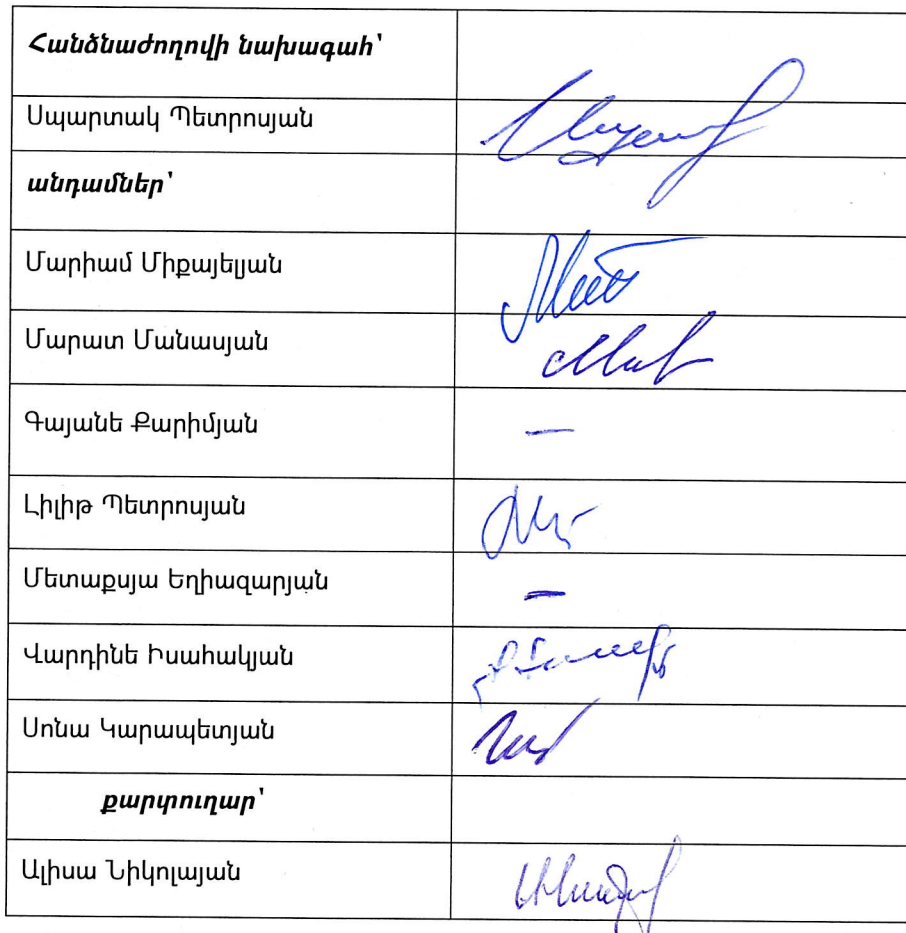 Հանձնաժողովի նախագահ՝
Սպարտակ Պետրոսյան
անդամներ՝
Մարիամ Միքայելյան
Մարատ Մանասյան
Գայանե Քարիմյան
—
Լիլիթ Պետրոսյան
Մետաքսյա Եղիազարյան
—
Վարդինե Իսահակյան
Սոնա Կարապետյան
քարտուղար՝
Ալիսա Նիկոլայան